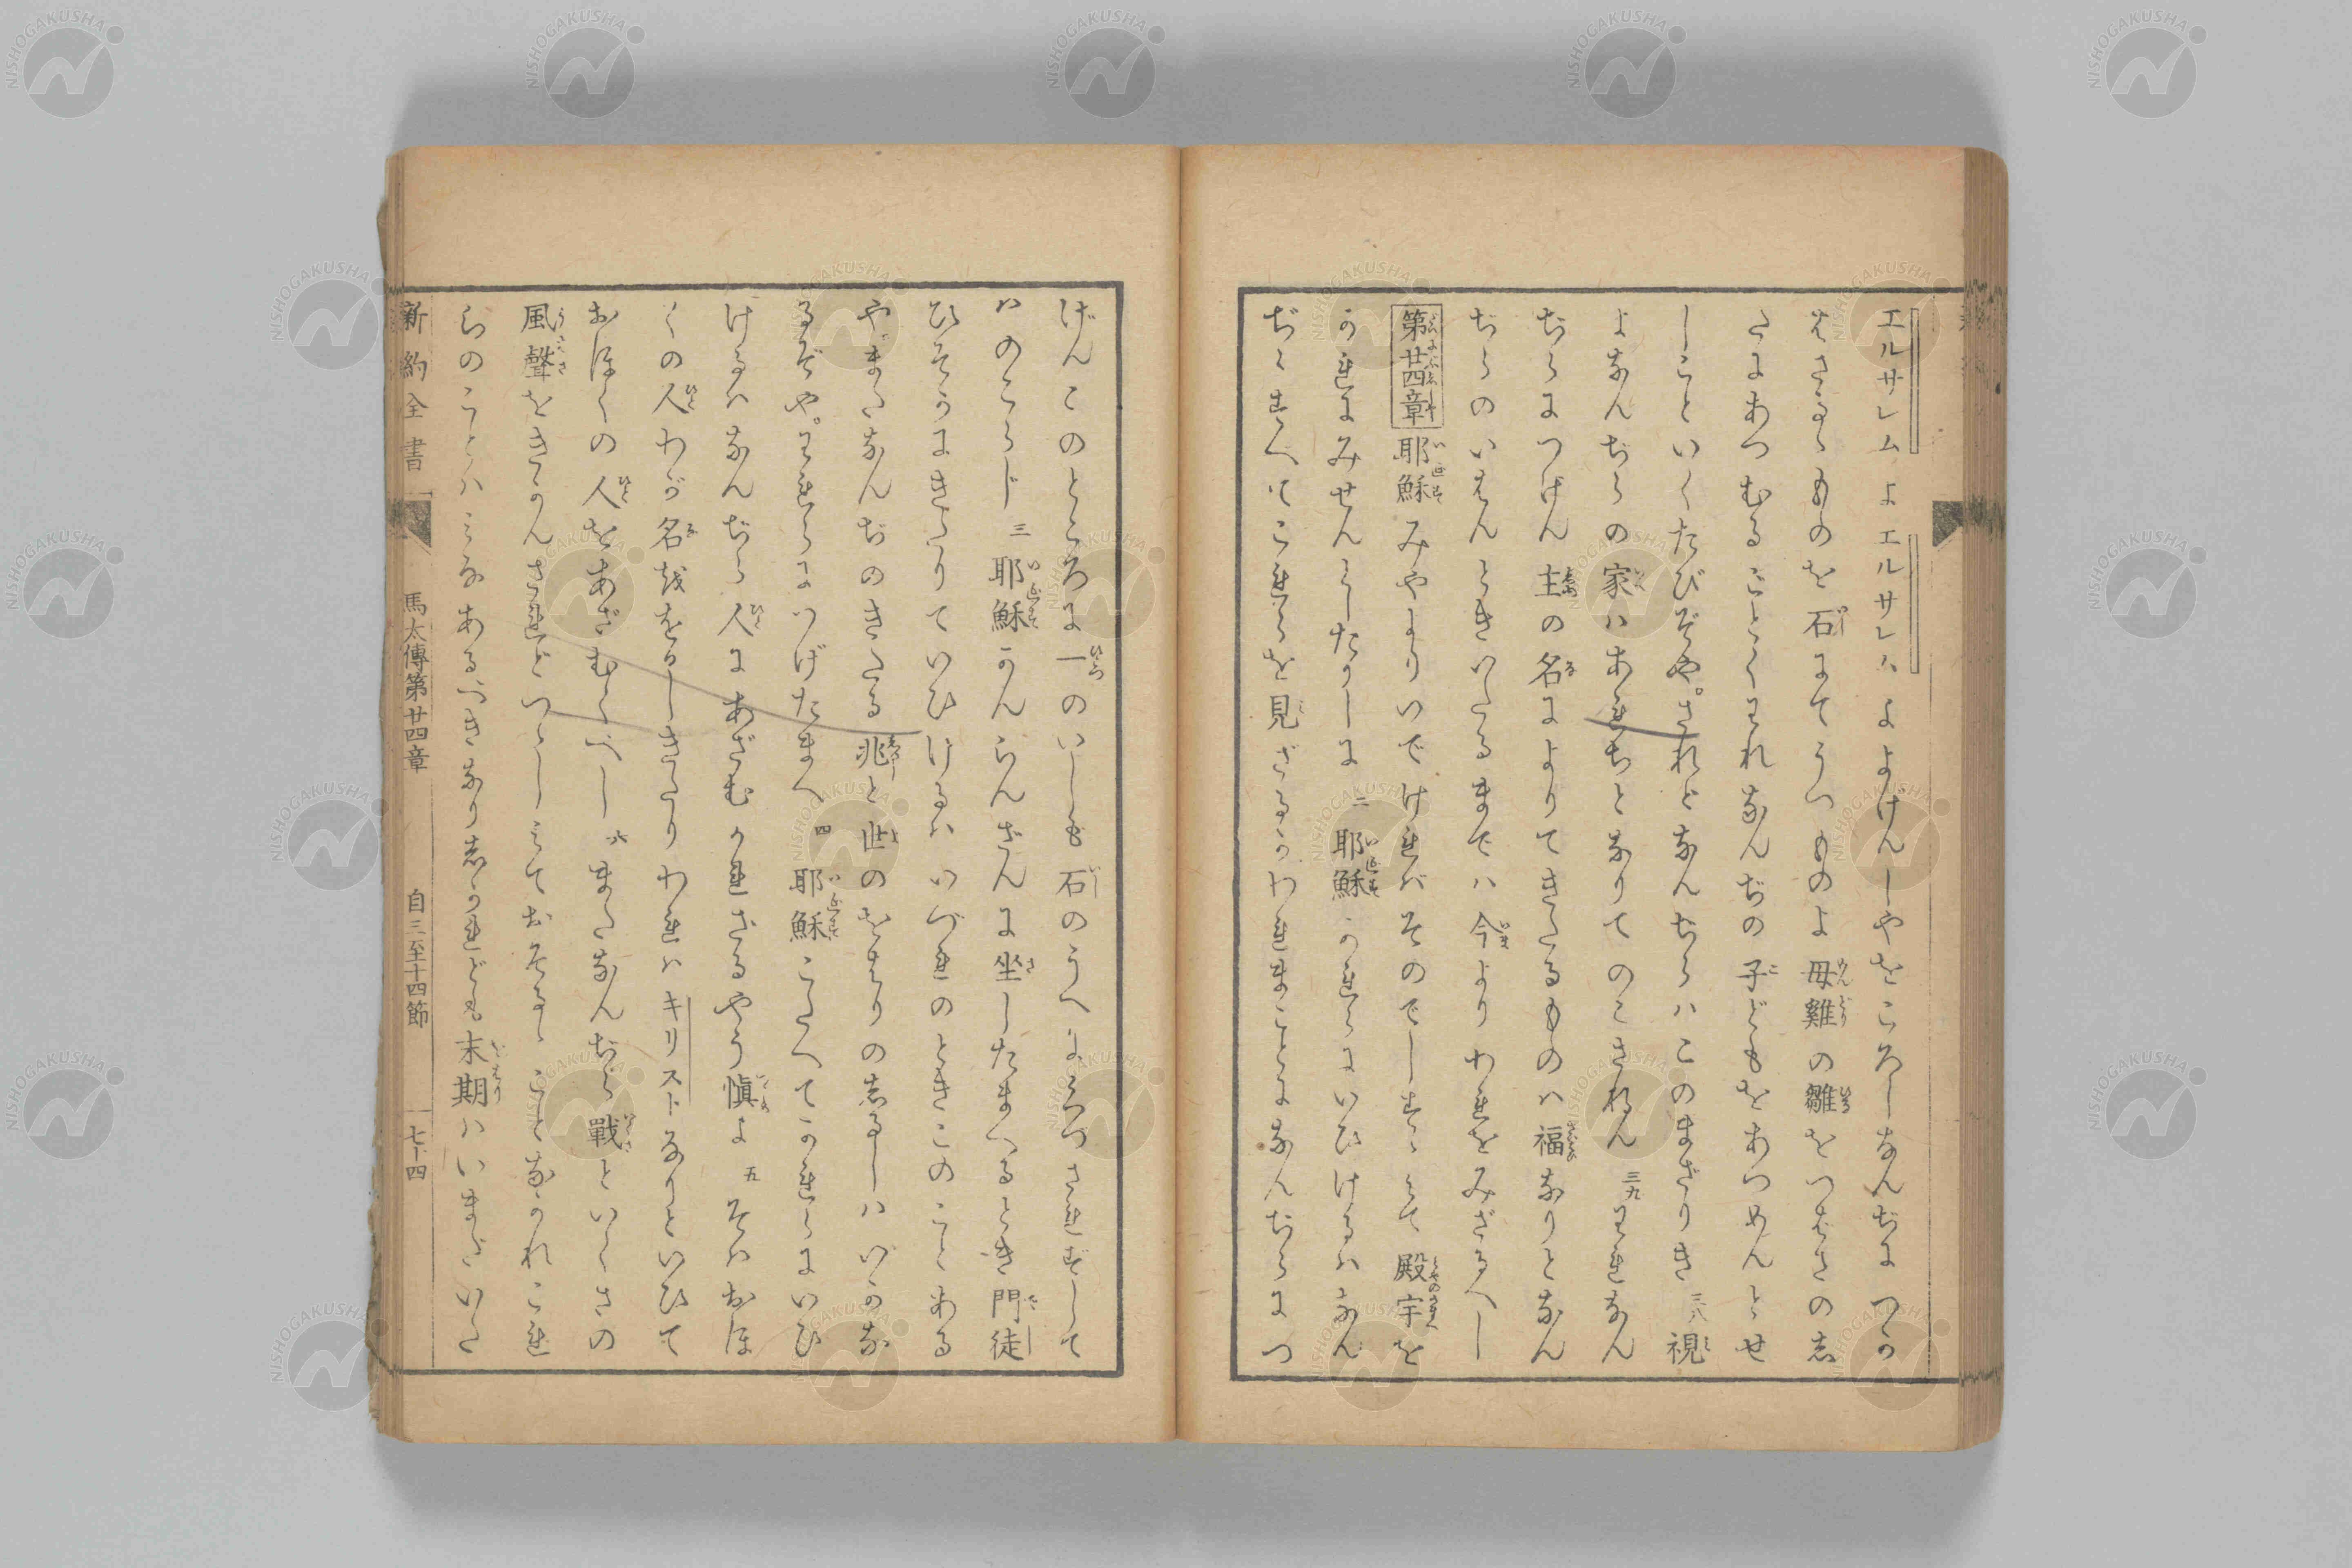 エルサレムよエルサレハよよけんしやをころしなんぢにつか
はさるゝものを石にてうつものよ母雞の雛をつばさのし
たにあつむるごとくわれなんぢの子どもをあつめんとせ
しこといくたびぞや。されどなんぢらハこのまざりき三八視
よなんぢらの家ハあれちとなりてのこされん三九われなん
ぢらにつげん主の名によりてきたるものハ福なりとなん
ぢらのいはんときいたるまでハ今よりわれをみざるへし
第廿四章耶穌みやよりいでければそのでしすゝみて殿宇を
かれにみせんとしたりしに二耶穌かれらにいひけるハなん
ぢらすべてこれらを見ざるかわれまことになんぢらにつ
げんこのところに一のいしも石のうへにくづされずして
ハのこらじ三耶穌かんらんざんに坐したまへるとき門徒
ひそかにきたりていひけるハいづれのときこのことある
やまたなんぢのきたる兆と世のをはりのしるしハいかな
るぞや。われらにつげたまへ四耶穌こたへてかれらにいひ
けるハなんぢら人にあざむかれざるやう愼よ五そハおほ
くの人わが名ををかしきたりわれハキリストなりといひて
おほくの人をあざむくべし六またなんぢら戰といくさの
風聲をきかんされどつゝしみておそるゝことなかれこれ
らのことハみなあるべきなりしかれども末期ハいまだいた
新約全書 馬太傳第廿四章 自三至十四節 一七十四
NISHOGAKUSHA